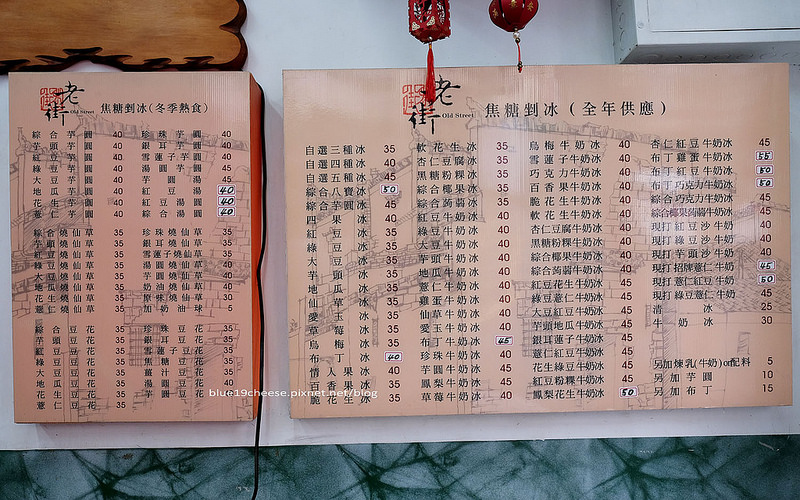 老街 Old Street 焦糖剉冰(冬季熱食)
綜合芋圓 40
芋頭芋圓 40
紅豆芋圓 40
綠豆芋圓 40
大豆芋圓 40
地瓜芋圓 40
花生芋圓 40
薏仁芋圓 40
綜合燒仙草 35
芋頭燒仙草 35
紅豆燒仙草 35
綠豆燒仙草 35
大豆燒仙草 35
地瓜燒仙草 35
花生燒仙草 35
薏仁燒仙草 35
綜合豆花 35
芋頭豆花 35
紅豆豆花 35
綠豆豆花 35
大豆豆花 35
地瓜豆花 35
花生豆花 35
薏仁豆花 35
珍珠芋圓 40
銀耳芋圓 40
雪蓮子芋圓 40
湯圓芋圓 40
芋圓湯 45
紅豆湯 40
紅豆湯圓 40
綜合湯圓 40
珍珠燒仙草 35
銀耳燒仙草 35
雪蓮子燒仙草 35
湯圓燒仙草 40
芋圓燒仙草 40
奶油燒仙草 40
原味燒仙草 30
加奶油球 5
珍珠豆花 35
銀耳豆花 35
雪蓮子豆花 35
焦糖豆花 35
薑汁豆花 35
湯圓豆花 40
芋圓豆花 40
老街 Old Street 焦糖剉冰(全年供應)
自選三種冰 35
自選四種冰 40
自選五種冰
綜合八寶冰 50
綜合芋圓冰
四果冰 40
紅豆冰 35
綠豆冰 35
大豆冰 35
芋頭冰 35
地瓜冰 35
仙草冰 35
愛玉冰 35
草莓冰 35
烏梅冰 35
布丁冰 40
情人果冰 40
百香果冰 35
脆花生冰 35
軟花生冰 35
杏仁豆腐冰 35
黑糖粉粿冰 35
綜合椰果冰 35
綜合蒟蒻冰 35
紅豆牛奶冰 40
綠豆牛奶冰 40
大豆牛奶冰 40
芋頭牛奶冰 40
地瓜牛奶冰 40
薏仁牛奶冰 40
雞蛋牛奶冰 40
仙草牛奶冰 40
愛玉牛奶冰 40
布丁牛奶冰 45
珍珠牛奶冰 40
芋圓牛奶冰 45
鳳梨牛奶冰 40
草莓牛奶冰 40
烏梅牛奶冰 40
雪蓮子牛奶冰 40
巧克力牛奶冰 40
百香果牛奶冰 40
脆花生牛奶冰 40
軟花生牛奶冰 40
杏仁豆腐牛奶冰 40
黑糖粉粿牛奶冰 40
綜合椰果牛奶冰 40
綜合蒟蒻牛奶冰 40
紅豆花生牛奶冰 45
綠豆薏仁牛奶冰 45
大豆紅豆牛奶冰 45
芋頭地瓜牛奶冰 45
銀耳蓮子牛奶冰 45
薏仁紅豆牛奶冰 45
花生綠豆牛奶冰 45
紅豆粉粿牛奶冰 45
鳳梨花生牛奶冰 50
杏仁紅豆牛奶冰 45
布丁雞蛋牛奶冰 55
布丁紅豆牛奶冰 50
布丁巧克力牛奶冰 50
綜合巧克力牛奶冰 45
綜合椰果蒟蒻牛奶冰 45
現打紅豆沙牛奶 45
現打綠豆沙牛奶 45
現打芋頭沙牛奶 45
現打招牌薏仁牛奶 45
現打薏仁紅豆牛奶 50
現打綠豆薏仁牛奶 45
清冰 25
牛奶冰 30
另加煉乳(牛奶)or配料 5
另加芋圓 10
另加布丁 15
blue19cheese.pixnet.net/blog